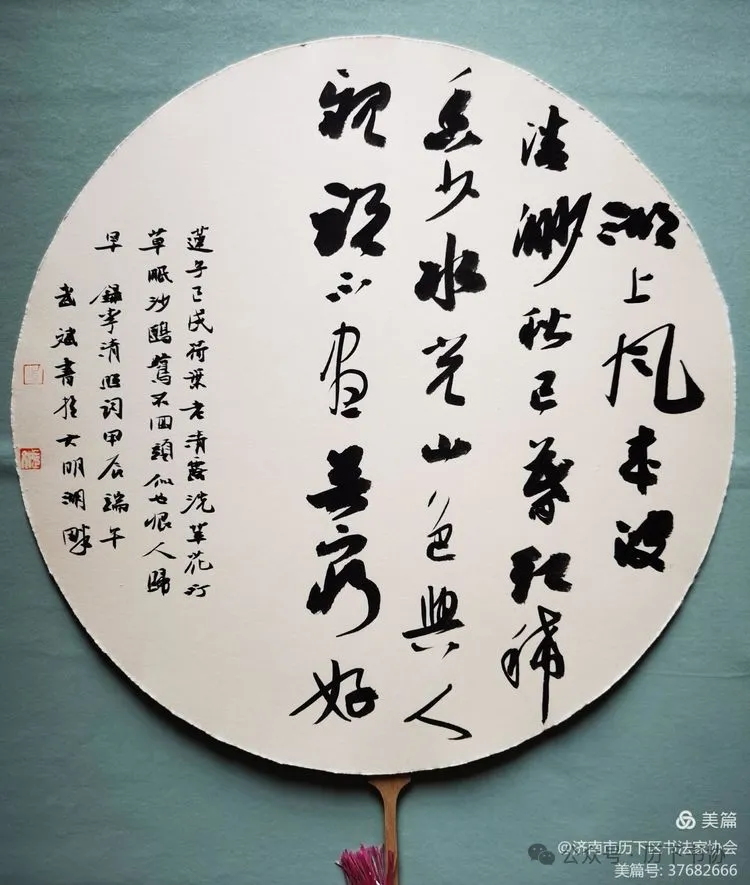 湖上风来波
浩渺秋已暮红稀
香少水光山色與人
親說不盡無窮好
蓮子已成荷葉老清露洗蘋花汀
草眠沙鷗鷺不回頭似也恨人歸
早 錄李清照词甲辰端午
武斌書於大明湖畔
美篇
@济南市历下区书法家协会
公众号·历下书协
美篇号: 37682666